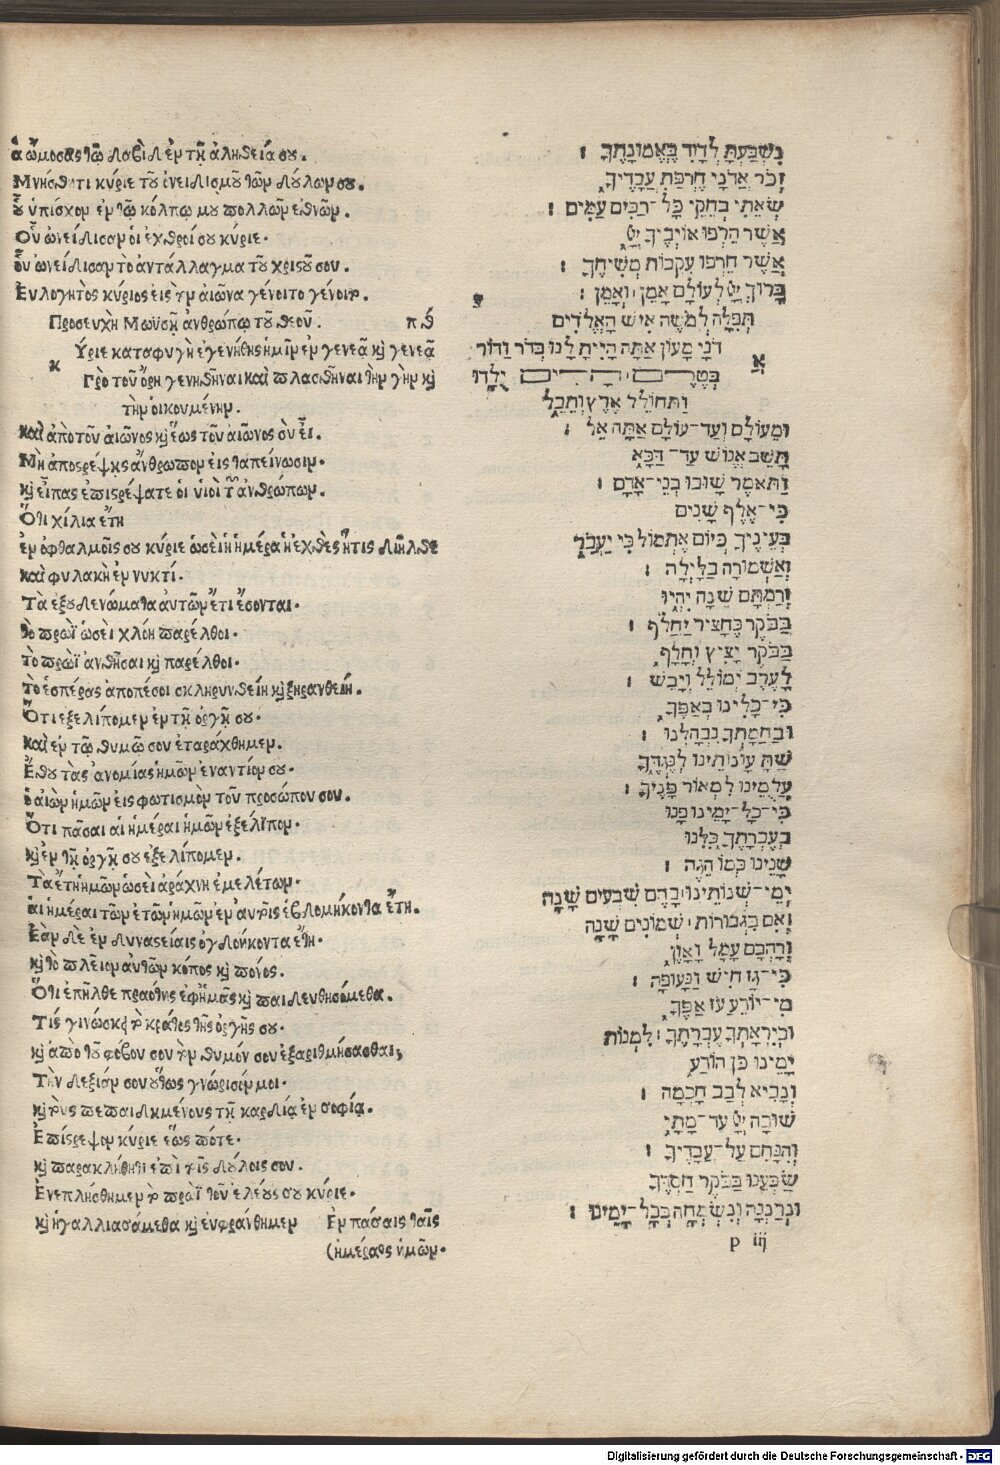 ἃ ὤμοσας τῷ Δαβὶδ ἐν τῇ ἀληθείᾳ σου.
Μνήσθητι κύριε τοῦ ὀνειδισμοῦ τῶν δούλων σου.
οὗ ὑπέσχον ἐν τῷ κόλπῳ μου πολλῶν ἐθνῶν.
Οὗ ὠνείδισαν οἱ ἐχθροί σου κύριε.
οὗ ὠνείδισαν τὸ ἀντάλλαγμα τοῦ χριστοῦ σου.
Ευλογητὸς κύριος εἰς τὸν αἰῶνα γένοιτο γένοιτο.
Προσευχὴ Μωϋσῆ ἀνθρώπῳ τοῦ θεοῦ. πθ
κ
Υριε καταφυγὴ ἐγενήθης ἡμῖν ἐν γενεᾷ κ̀ γενεᾷ
Πρὸ τοῦ ὄρη γενηθῆναι καὶ πλασθῆναι τὴν γῆν κ̀
τὴν οἰκουμένην.
καὶ ἀπὸ τοῦ αἰῶνος κ̀ ἕως τοῦ αἰῶνος σὺ εἶ.
Μὴ ἀποστρέψῃς ἄνθρωπον εἰς ταπείνωσιν.
κ̀ εἶπας ἐπιστρέψατε οἱ υἱοὶ τῶν ἀνθρώπων.
Ὅτι χίλια ἔτη
ἐν ὀφθαλμοῖς σου κύριε ὡσεὶ ἡ ἡμέρα ἡ ἐχθὲς ἥτις διῆλθε
καὶ φυλακὴ ἐν νυκτί.
Τὰ ἐξουδενώματα αὐτῶν ἔτι ἔσονται.
τὸ πρωῒ ὡσεὶ χλόη παρέλθοι.
τὸ πρωῒ ἀνθήσαι κ̀ παρέλθοι.
τὸ ἑσπέρας ἀποπέσοι σκληρυνθείη κ̀ ξηρανθείη.
Ὅτι εξελίπομεν ἐν τῇ ὀργῇ σου.
καὶ ἐν τῷ θυμῷ σου ἐταράχθημεν.
Ἔθου τὰς ἀνομίας ἡμῶν ἐναντίον σου.
ὁ αἰὼν ἡμῶν εἰς φωτισμὸν τοῦ προσώπου σου.
Ὅτι πᾶσαι αἱ ἡμέραι ἡμῶν ἐξελῖπον.
κ̀ ἐν τῇ ὀργῇ σου ἐξελίπομεν.
Τὰ ἔτη ἡμῶν ὡσεὶ ἀράχνη ἐμελέτων.
αἱ ἡμέραι τῶν ἐτῶν ἡμῶν ἐν αὐτοῖς ἑβδομήκοντα ἔτη.
Ἐὰν δὲ ἐν δυναστείαις ὀγδοήκοντα ἔτη.
κ̀ τὸ πλεῖον αὐτῶν κόπος κ̀ πόνος.
Ὅτι ἐπῆλθε πραότης ἐφ' ἡμᾶς κ̀ παιδευθησόμεθα.
Τίς γινώσκει τὸ κράτος τῆς ὀργῆς σου.
κ̀ ἀπὸ τοῦ φόβου σου τὸν θυμόν σου ἐξαριθμήσασθαι;
Τὴν δεξιάν σου οὕτως γνώρισόν μοι.
κ̀ τοὺς πεπαιδημένους τῇ καρδίᾳ ἐν σοφίᾳ.
Ἐπίστρεψον κύριε ἕως πότε.
κ̀ παρακλήθητι ἐπὶ τοῖς δούλοις σου.
Ἐνεπλήσθημεν τὸ πρωῒ τοῦ ἐλέους σου κύριε.
κ̀ ἠγαλλιασάμεθα κ̀ εὐφράνθημεν Ἐν πάσαις ταῖς
(ἡμέραις ἡμῶν.
נִשְׁבַּעְתָּ לְדָוִד בֶּאֱמוּנָתֶךָ :
זְכֹר אֲדֹנָי חֶרְפַּת עֲבָדֶיךָ
שְׂאֵתִי בְחֵקִי כָּל־רַבִּים עַמִּים :
אֲשֶׁר חֵרְפוּ אוֹיְבֶיךָ יְיָ
אֲשֶׁר חֵרְפוּ עִקְבוֹת מְשִׁיחֶךָ :
בָּרוּךְ יְיָ לְעוֹלָם אָמֵן וְאָמֵן :
צ
תְּפִלָּה לְמֹשֶׁה אִישׁ הָאֱלֹדִים
אֲ
דֹנָי מָעוֹן אַתָּה הָיִיתָ לָנוּ בְּדֹר וָדוֹר
בְּטֶרֶם הָרִים יֻלָּדוּ
וַתְּחוֹלֵל אֶרֶץ וְתֵבֵל
וּמֵעוֹלָם וְעַד־עוֹלָם אַתָּה אֵל :
תָּשֵׁב אֱנוֹשׁ עַד־דַּכָּא
וַתֹּאמֶר שׁוּבוּ בְנֵי־אָדָם :
כִּי־אֶלֶף שָׁנִים
בְּעֵינֶיךָ כְּיוֹם אֶתְמוֹל כִּי יַעֲבֹר
וְאַשְׁמוּרָה בַלָּיְלָה :
זְרַמְתָּם שֵׁנָה יִהְיוּ
בַּבֹּקֶר כֶּחָצִיר יַחֲלֹף :
בַּבֹּקֶר יָצִיץ וְחָלָף
לָעֶרֶב יְמוֹלֵל וְיָבֵשׁ :
כִּי־כָלִינוּ בְאַפֶּךָ
וּבַחֲמָתְךָ נִבְהָלְנוּ :
שַׁתָּ עֲוֹנוֹתֵינוּ לְנֶגְדֶּךָ
עֲלֻמֵינוּ לִמְאוֹר פָּנֶיךָ :
כִּי־כָל־יָמֵינוּ פָּנוּ
בְעֶבְרָתֶךָ כִּלִּינוּ
שָׁנֵינוּ כְמוֹ הֶגֶה :
יְמֵי־שְׁנוֹתֵינוּ בָהֶם שִׁבְעִים שָׁנָה
וְאִם בִּגְבוּרוֹת שְׁמוֹנִים שָׁנָה
וְרָהְבָּם עָמָל וָאָוֶן
כִּי־גָז חִישׁ וַנָּעֻפָה :
מִי־יוֹדֵעַ עֹז אַפֶּךָ
וּכְיִרְאָתְךָ עֶבְרָתֶךָ : לִמְנוֹת
יָמֵינוּ כֵּן הוֹדַע
וְנָבִיא לְבַב חָכְמָה :
שׁוּבָה יְיָ עַד־מָתָי
וְהִנָּחֵם עַל־עֲבָדֶיךָ :
שַׂבְּעֵנוּ בַבֹּקֶר חַסְדֶּךָ
וּנְרַנְּנָה וְנִשְׂמְחָה בְּכָל־יָמֵינוּ :
p iij
Digitalisierung gefördert durch die Deutsche Forschungsgemeinschaft - DFG